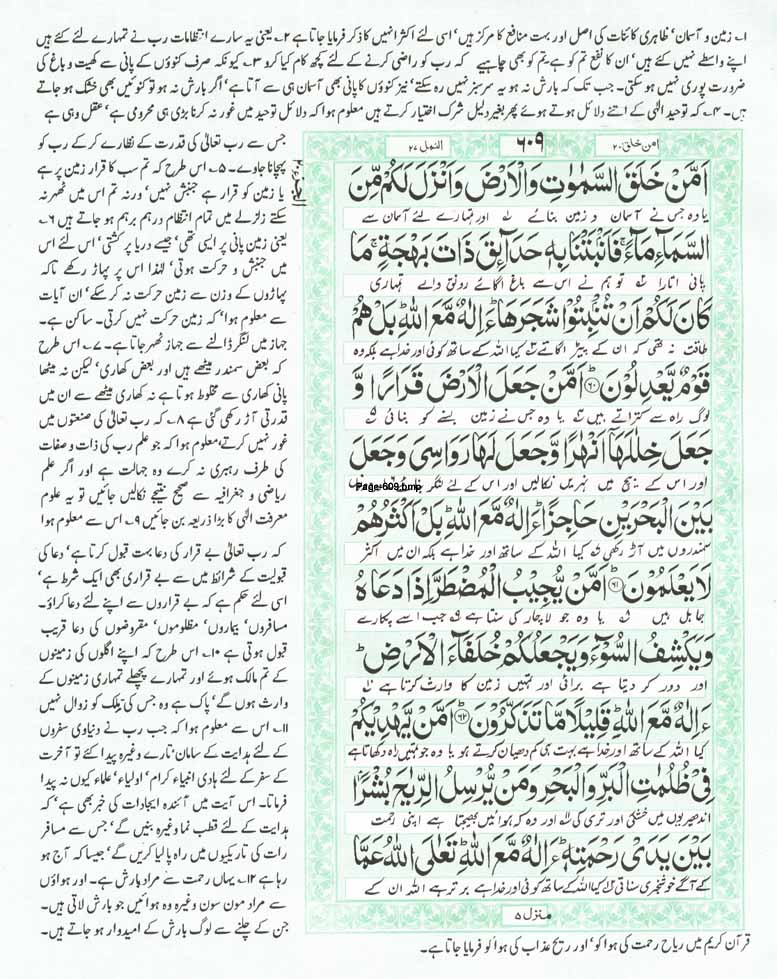 ۱۔ زمین و آسمان' ظاہری کائنات کی اصل اور بہت منافع کا مرکز ہیں' اسی لئے اکثر انہیں کا ذکر فرمایا جاتا ہے ۲۔ یعنی یہ سارے انتظامات رب نے تمہارے لئے کئے ہیں
اپنے واسطے نہیں کئے ہیں' ان کا نفع تم کو ہے' تم کو بھی چاہیے کہ رب کو راضی کرنے کے لئے کچھ کام کیا کرو ۳۔ کیونکہ صرف کنوؤں کے پانی سے کھیت و باغ کی
ضرورت پوری نہیں ہو سکتی۔ جب تک کہ بارش نہ ہو یہ سرسبز نہیں رہ سکتے' نیز کنوؤں کا پانی بھی آسمان ہی سے آتا ہے' اگر بارش نہ ہو تو کنوئیں بھی خشک ہو جاتے
ہیں۔ ۴۔ کہ توحید الٰہی کے اتنے دلائل ہوتے ہوئے پھر بغیر دلیل شرک اختیار کرتے ہیں معلوم ہوا کہ دلائل توحید میں غور نہ کرنا بڑی ہی محرومی ہے' عقل وہی ہے
امن خلق ۲۰
۶۰۹
النمل ۲۷
اَمَّنْ خَلَقَ السَّمٰوٰتِ وَالْاَرْضَ وَاَنْزَلَ لَكُمْ مِّنَ
یا وہ جس نے آسمان و زمین بنائے اور تمہارے لئے آسمان سے
السَّمَآءِ مَآءً ۚ فَاَنْۢبَتْنَا بِهٖ حَدَآىِٕقَ ذَاتَ بَهْجَةٍ ۚ مَا
پانی اتارا تو ہم نے اس سے باغ اگائے رونق والے تمہاری
كَانَ لَكُمْ اَنْ تُنْۢبِتُوْا شَجَرَهَا ؕ ءَاِلٰهٌ مَّعَ اللّٰهِ ؕ بَلْ هُمْ
طاقت نہ تھی کہ ان کے پیڑ اگاتے کیا اللہ کے ساتھ کوئی اور خدا ہے بلکہ وہ
قَوْمٌ يَّعْدِلُوْنَ ؕ﴿۶۰﴾ اَمَّنْ جَعَلَ الْاَرْضَ قَرَارًا وَّ
لوگ راہ سے کتراتے ہیں یا وہ جس نے زمین بسنے کو بنائی
جَعَلَ خِلٰلَهَاۤ اَنْهٰرًا وَّجَعَلَ لَهَا رَوَاسِیَ وَجَعَلَ
اور اس کے بیچ میں نہریں نکالیں اور اس کے لئے لنگر
Page-609.bmp
بَيْنَ الْبَحْرَيْنِ حَاجِزًا ؕ ءَاِلٰهٌ مَّعَ اللّٰهِ ؕ بَلْ اَكْثَرُهُمْ
سمندروں میں آڑ رکھی کیا اللہ کے ساتھ اور خدا ہے بلکہ ان میں اکثر
لَا يَعْلَمُوْنَ ؕ﴿۶۱﴾ اَمَّنْ يُّجِيْبُ الْمُضْطَرَّ اِذَا دَعَاهُ
جاہل ہیں یا وہ جو لاچار کی سنتا ہے جب اسے پکارے
وَيَكْشِفُ السُّوْٓءَ وَيَجْعَلُكُمْ خُلَفَآءَ الْاَرْضِ ؕ
اور دور کر دیتا ہے برائی اور تمہیں زمین کا وارث کرتا ہے
ءَاِلٰهٌ مَّعَ اللّٰهِ ؕ قَلِيْلًا مَّا تَذَكَّرُوْنَ ؕ﴿۶۲﴾ اَمَّنْ يَّهْدِيْكُمْ
کیا اللہ کے ساتھ اور خدا ہے بہت ہی کم دھیان کرتے ہو یا وہ جو تمہیں راہ دکھاتا ہے
فِیْ ظُلُمٰتِ الْبَرِّ وَالْبَحْرِ وَمَنْ يُّرْسِلُ الرِّيٰحَ بُشْرًۢا
اندھیریوں میں خشکی اور تری کی اور وہ کہ ہوائیں بھیجتا ہے اپنی رحمت
بَيْنَ يَدَیْ رَحْمَتِهٖ ؕ ءَاِلٰهٌ مَّعَ اللّٰهِ ؕ تَعٰلَى اللّٰهُ عَمَّا
کے آگے خوشخبری سناتی کیا اللہ کے ساتھ کوئی اور خدا ہے برتر ہے اللہ ان کے
منزل ۵
جس سے رب تعالیٰ کی قدرت کے نظارے کر کے رب کو
پہچانا جاوے۔ ۵۔ اس طرح کہ تم سب کا قرار زمین پر ہے
یا زمین کو قرار ہے جنبش نہیں' ورنہ تم اس میں ٹھہر نہ
سکتے زلزلے میں تمام انتظام درہم برہم ہو جاتے ہیں ۶۔
یعنی زمین پانی پر ایسی تھی' جیسے دریا پر کشتی' اس لئے اس
میں جنبش و حرکت ہوتی' لہٰذا اس پر پہاڑ رکھے تاکہ
پہاڑوں کے وزن سے زمین حرکت نہ کر سکے' ان آیات
سے معلوم ہوا' کہ زمین حرکت نہیں کرتی۔ ساکن ہے۔
جہاز میں لنگر ڈالنے سے جہاز ٹھہر جاتا ہے۔ ۷۔ اس طرح
کہ بعض سمندر میٹھے ہیں اور بعض کھاری' لیکن نہ میٹھا
پانی کھاری سے مخلوط ہوتا ہے نہ کھاری میٹھے سے ان میں
قدرتی آڑ رکھی گئی ہے ۸۔ کہ رب تعالیٰ کی صنعتوں میں
غور نہیں کرتے' معلوم ہوا کہ جو علم رب کی ذات و صفات
کی طرف رہبری نہ کرے وہ جہالت ہے اور اگر علم
ریاضی و جغرافیہ سے صحیح نتیجے نکالیں جائیں تو یہ علوم
معرفت الٰہی کا بڑا ذریعہ بن جائیں ۹۔ اس سے معلوم ہوا
کہ رب تعالیٰ بے قرار کی دعا بہت قبول کرتا ہے' دعا کی
قبولیت کے شرائط میں سے بے قراری بھی ایک شرط ہے'
اسی لئے حکم ہے کہ بے قراروں سے اپنے لئے دعا کراؤ۔
مسافروں' بیماروں' مظلوموں' مقروضوں کی دعا قریب
قبول ہوتی ہے ۱۰۔ اس طرح کہ اپنے اگلوں کی زمینوں
کے تم مالک ہوئے اور تمہارے پچھلے تمہاری زمینوں کے
وارث ہوں گے' پاک ہے وہ جس کی ملک کو زوال نہیں
۱۱۔ اس سے معلوم ہوا کہ جب رب نے دنیاوی سفروں
کے لئے ہدایت کے سامان' تارے وغیرہ پیدا کئے تو آخرت
کے سفر کے لئے ہادی انبیاء کرام' اولیاء' علماء کیوں نہ پیدا
فرماتا۔ اس آیت میں آئندہ ایجادات کی خبر بھی ہے' کہ
ہدایت کے لئے قطب نما وغیرہ بنیں گے' جس سے مسافر
رات کی تاریکیوں میں راہ پا لیا کریں گے' جیسا کہ آج ہو
رہا ہے ۱۲۔ یہاں رحمت سے مراد بارش ہے۔ اور ہواؤں
سے مراد مون سون وغیرہ وہ ہوائیں جو بارش لاتی ہیں۔
جن کے چلنے سے لوگ بارش کے امیدوار ہو جاتے ہیں۔
قرآن کریم میں ریاح رحمت کی ہوا کو' اور ریح عذاب کی ہوا کو فرمایا جاتا ہے۔